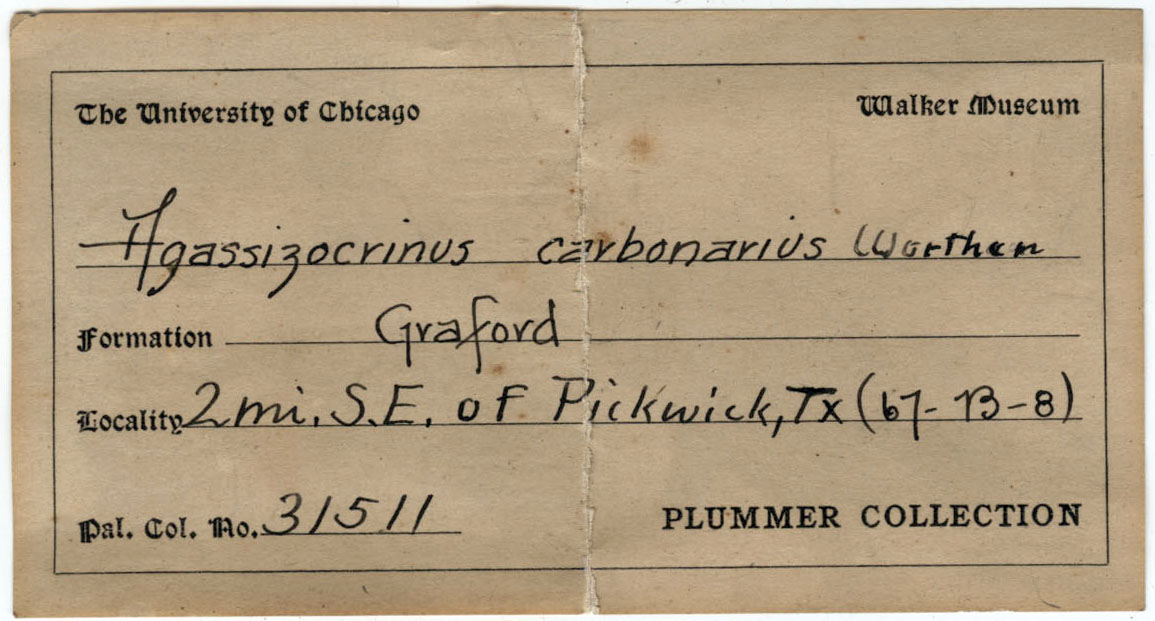 The University of Chicago Walker Museum
Agassizocrinus carbonarius Worthen
Formation Graford
Locality 2 mi. S.E. of Pickwick, Tx (67-13-8)
Pal. Col. No. 31511 PLUMMER COLLECTION